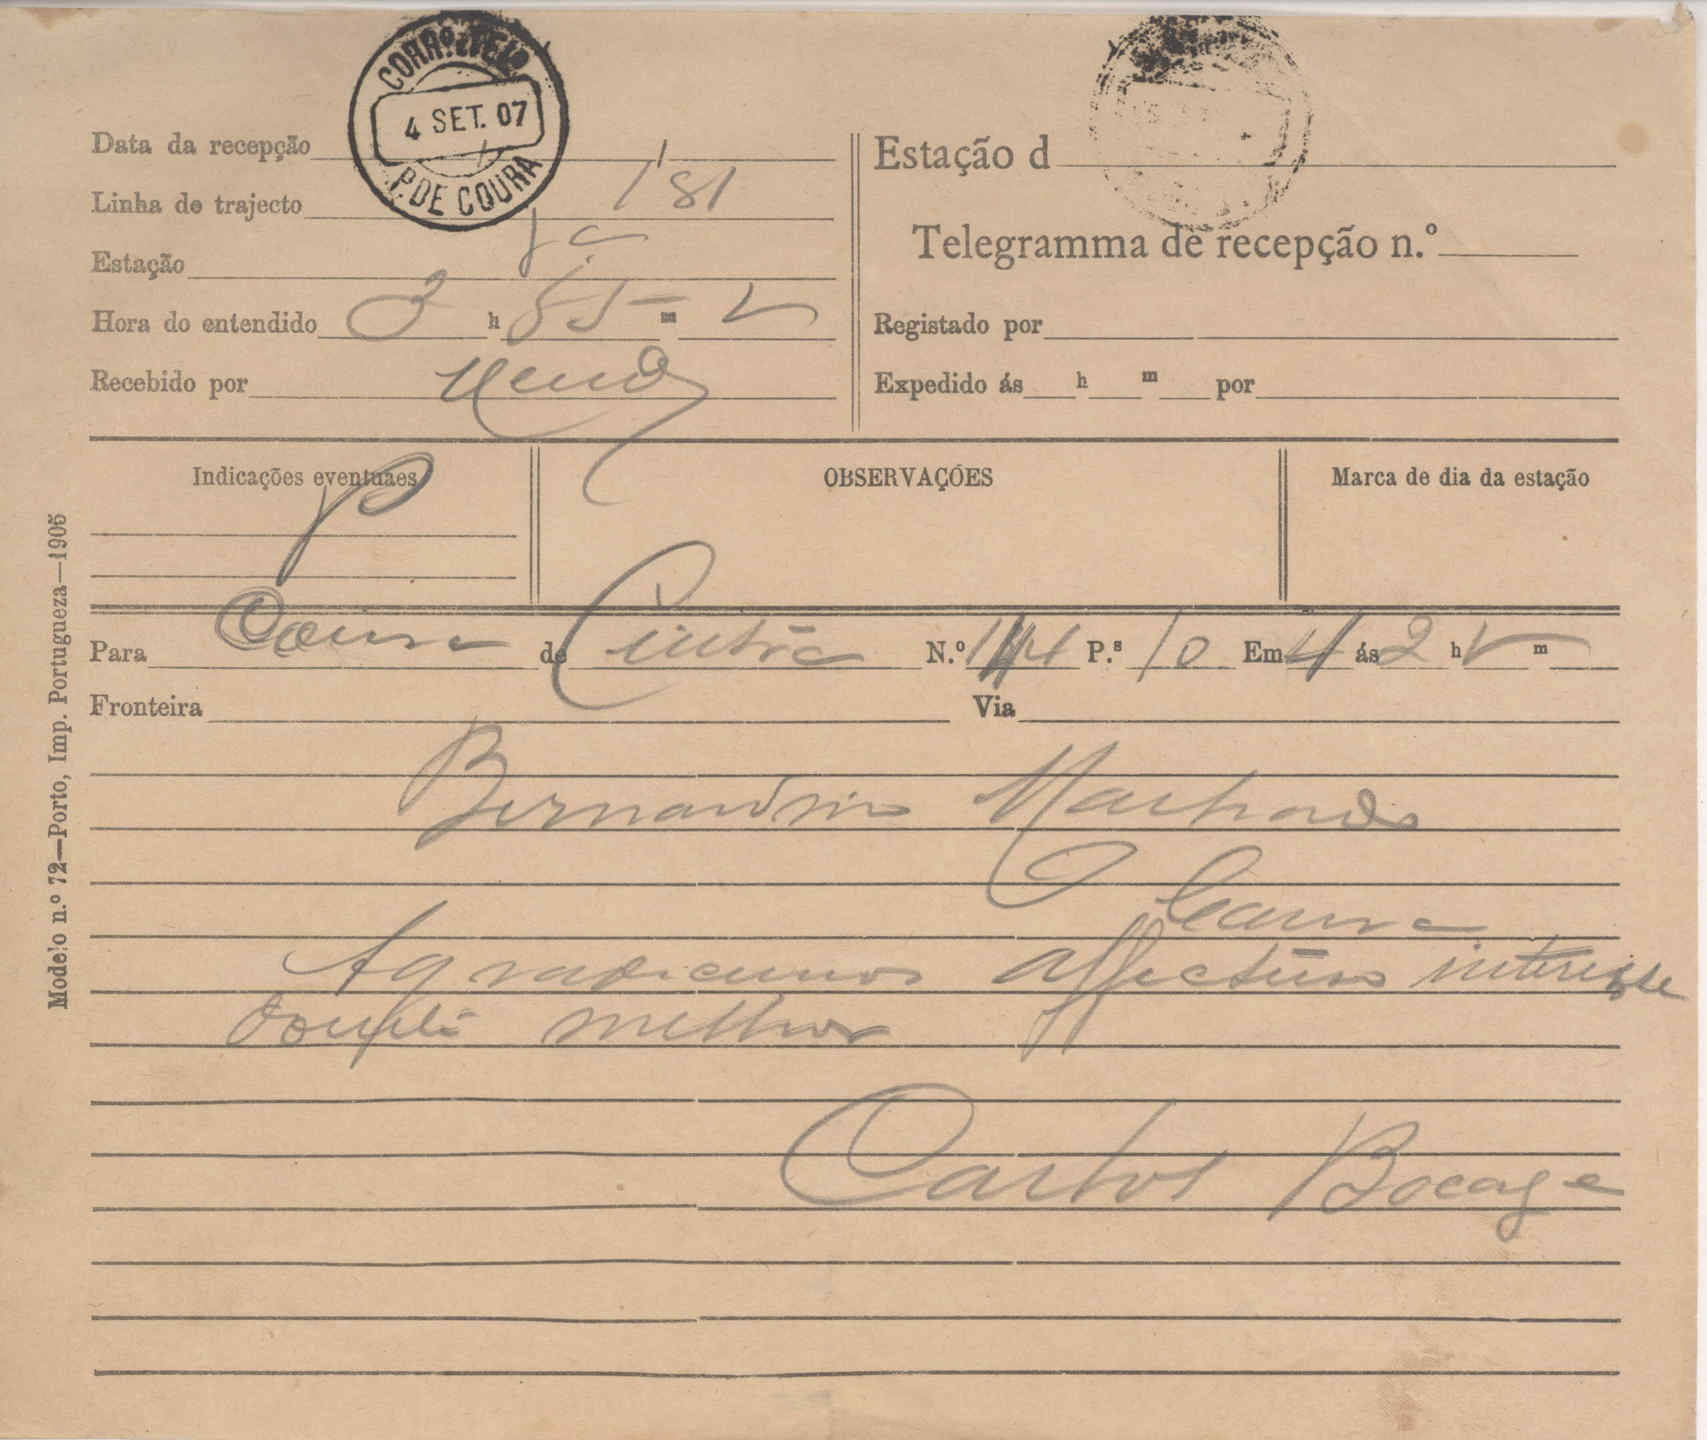 CORRº E TELº
4 SET. 07
P. DE COURA
Data da recepção
Linha de trajecto 181
Estação
Hora do entendido 3 h 55 m
Recebido por
Estação d
Telegramma de recepção n.º
Registado por
Expedido ás h m por
Indicações eventuaes
P
OBSERVAÇÕES
Marca de dia da estação
Para Coura de Cintra N.º 144 P.s 10 Em 4 ás 2 h m
Fronteira Via
Bernardino Machado
Coura
Agradecemos affectuoso interesse
melhor
Carlos Bocage
Modelo n.º 72—Porto, Imp. Portugueza—1905